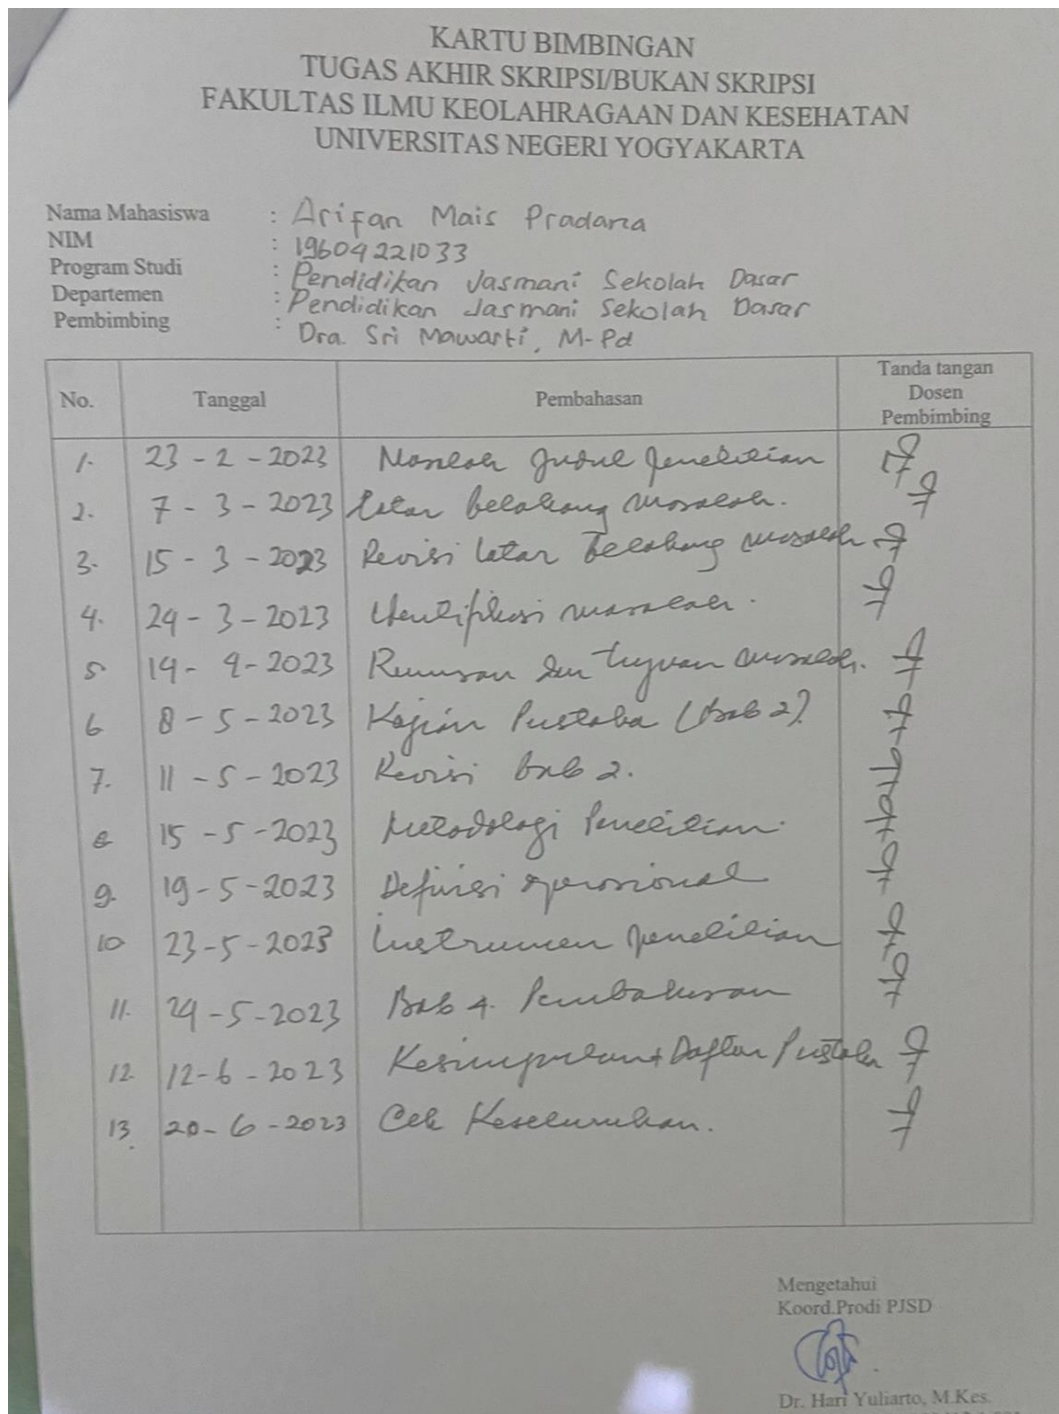 KARTU BIMBINGAN
TUGAS AKHIR SKRIPSI/BUKAN SKRIPSI
FAKULTAS ILMU KEOLAHRAGAAN DAN KESEHATAN
UNIVERSITAS NEGERI YOGYAKARTA
Nama Mahasiswa : Arifan Mais Pradana
NIM : 19604221033
Program Studi : Pendidikan Jasmani Sekolah Dasar
Departemen : Pendidikan Jasmani Sekolah Dasar
Pembimbing : Dra. Sri Mawarti, M-Pd
No. Tanggal Pembahasan Tanda tangan Dosen Pembimbing
1. 23-2-2023 Masalah Judul penelitian
2. 7-3-2023 latar belakang masalah.
3. 15-3-2023 Revisi latar Belakang masalah
4. 24-3-2023 Identifikasi masalah.
5. 14-4-2023 Rumusan dan tujuan masalah.
6 8-5-2023 Kajian Pustaka (Bab 2).
7. 11-5-2023 Revisi bab 2.
8 15-5-2023 Metodologi Penelitian.
9. 19-5-2023 Definisi operasional
10 23-5-2023 Instrumen penelitian
11. 24-5-2023 Bab 4. Pembahasan
12. 12-6-2023 Kesimpulan + Daftar Pustaka
13. 20-6-2023 Cek Keseluruhan.
Mengetahui
Koord.Prodi PJSD
Dr. Hari Yuliarto, M.Kes.